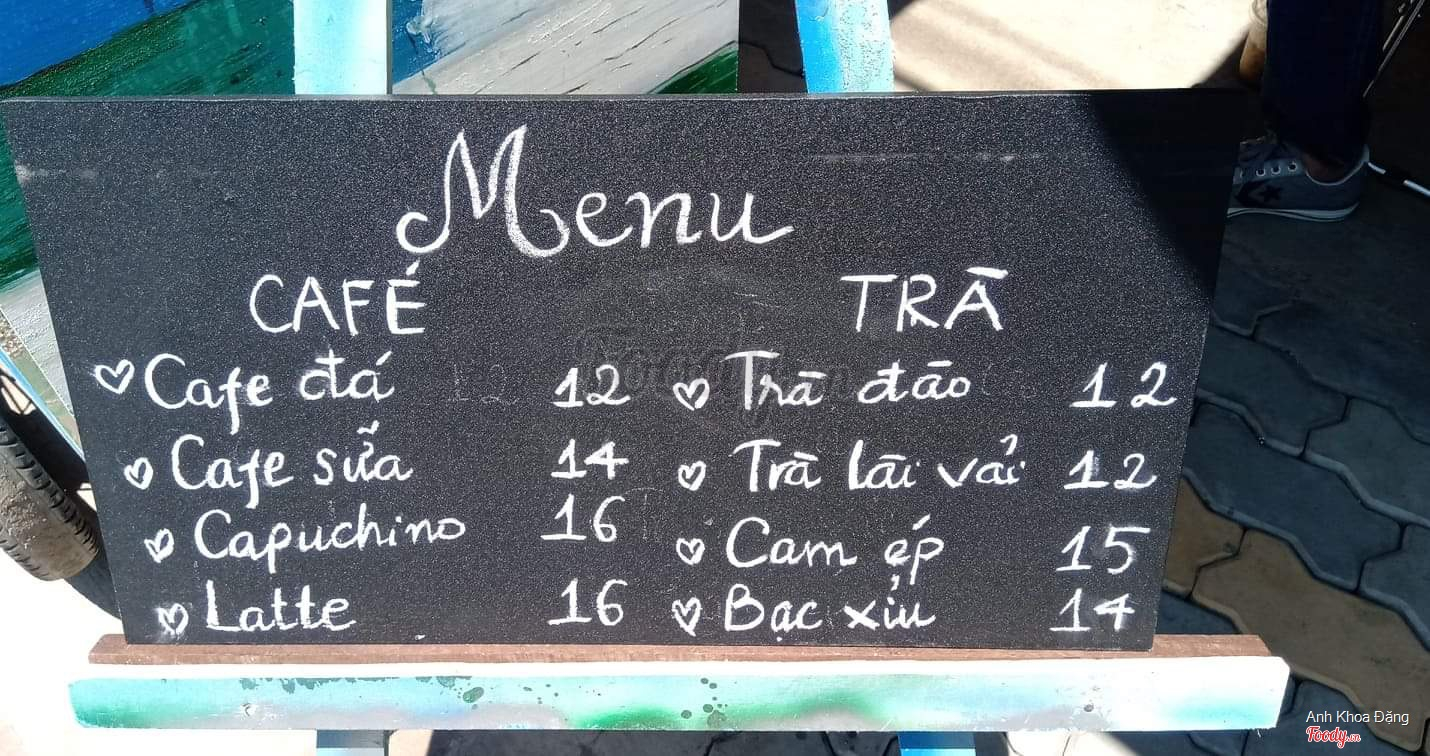 Menu
CAFÉ
Cafe đá 12
Cafe sữa 14
Capuchino 16
Latte 16
TRÀ
Trà đào 12
Trà lài vải 12
Cam ép 15
Bạc xỉu 14
Anh Khoa Đặng
Foody.vn